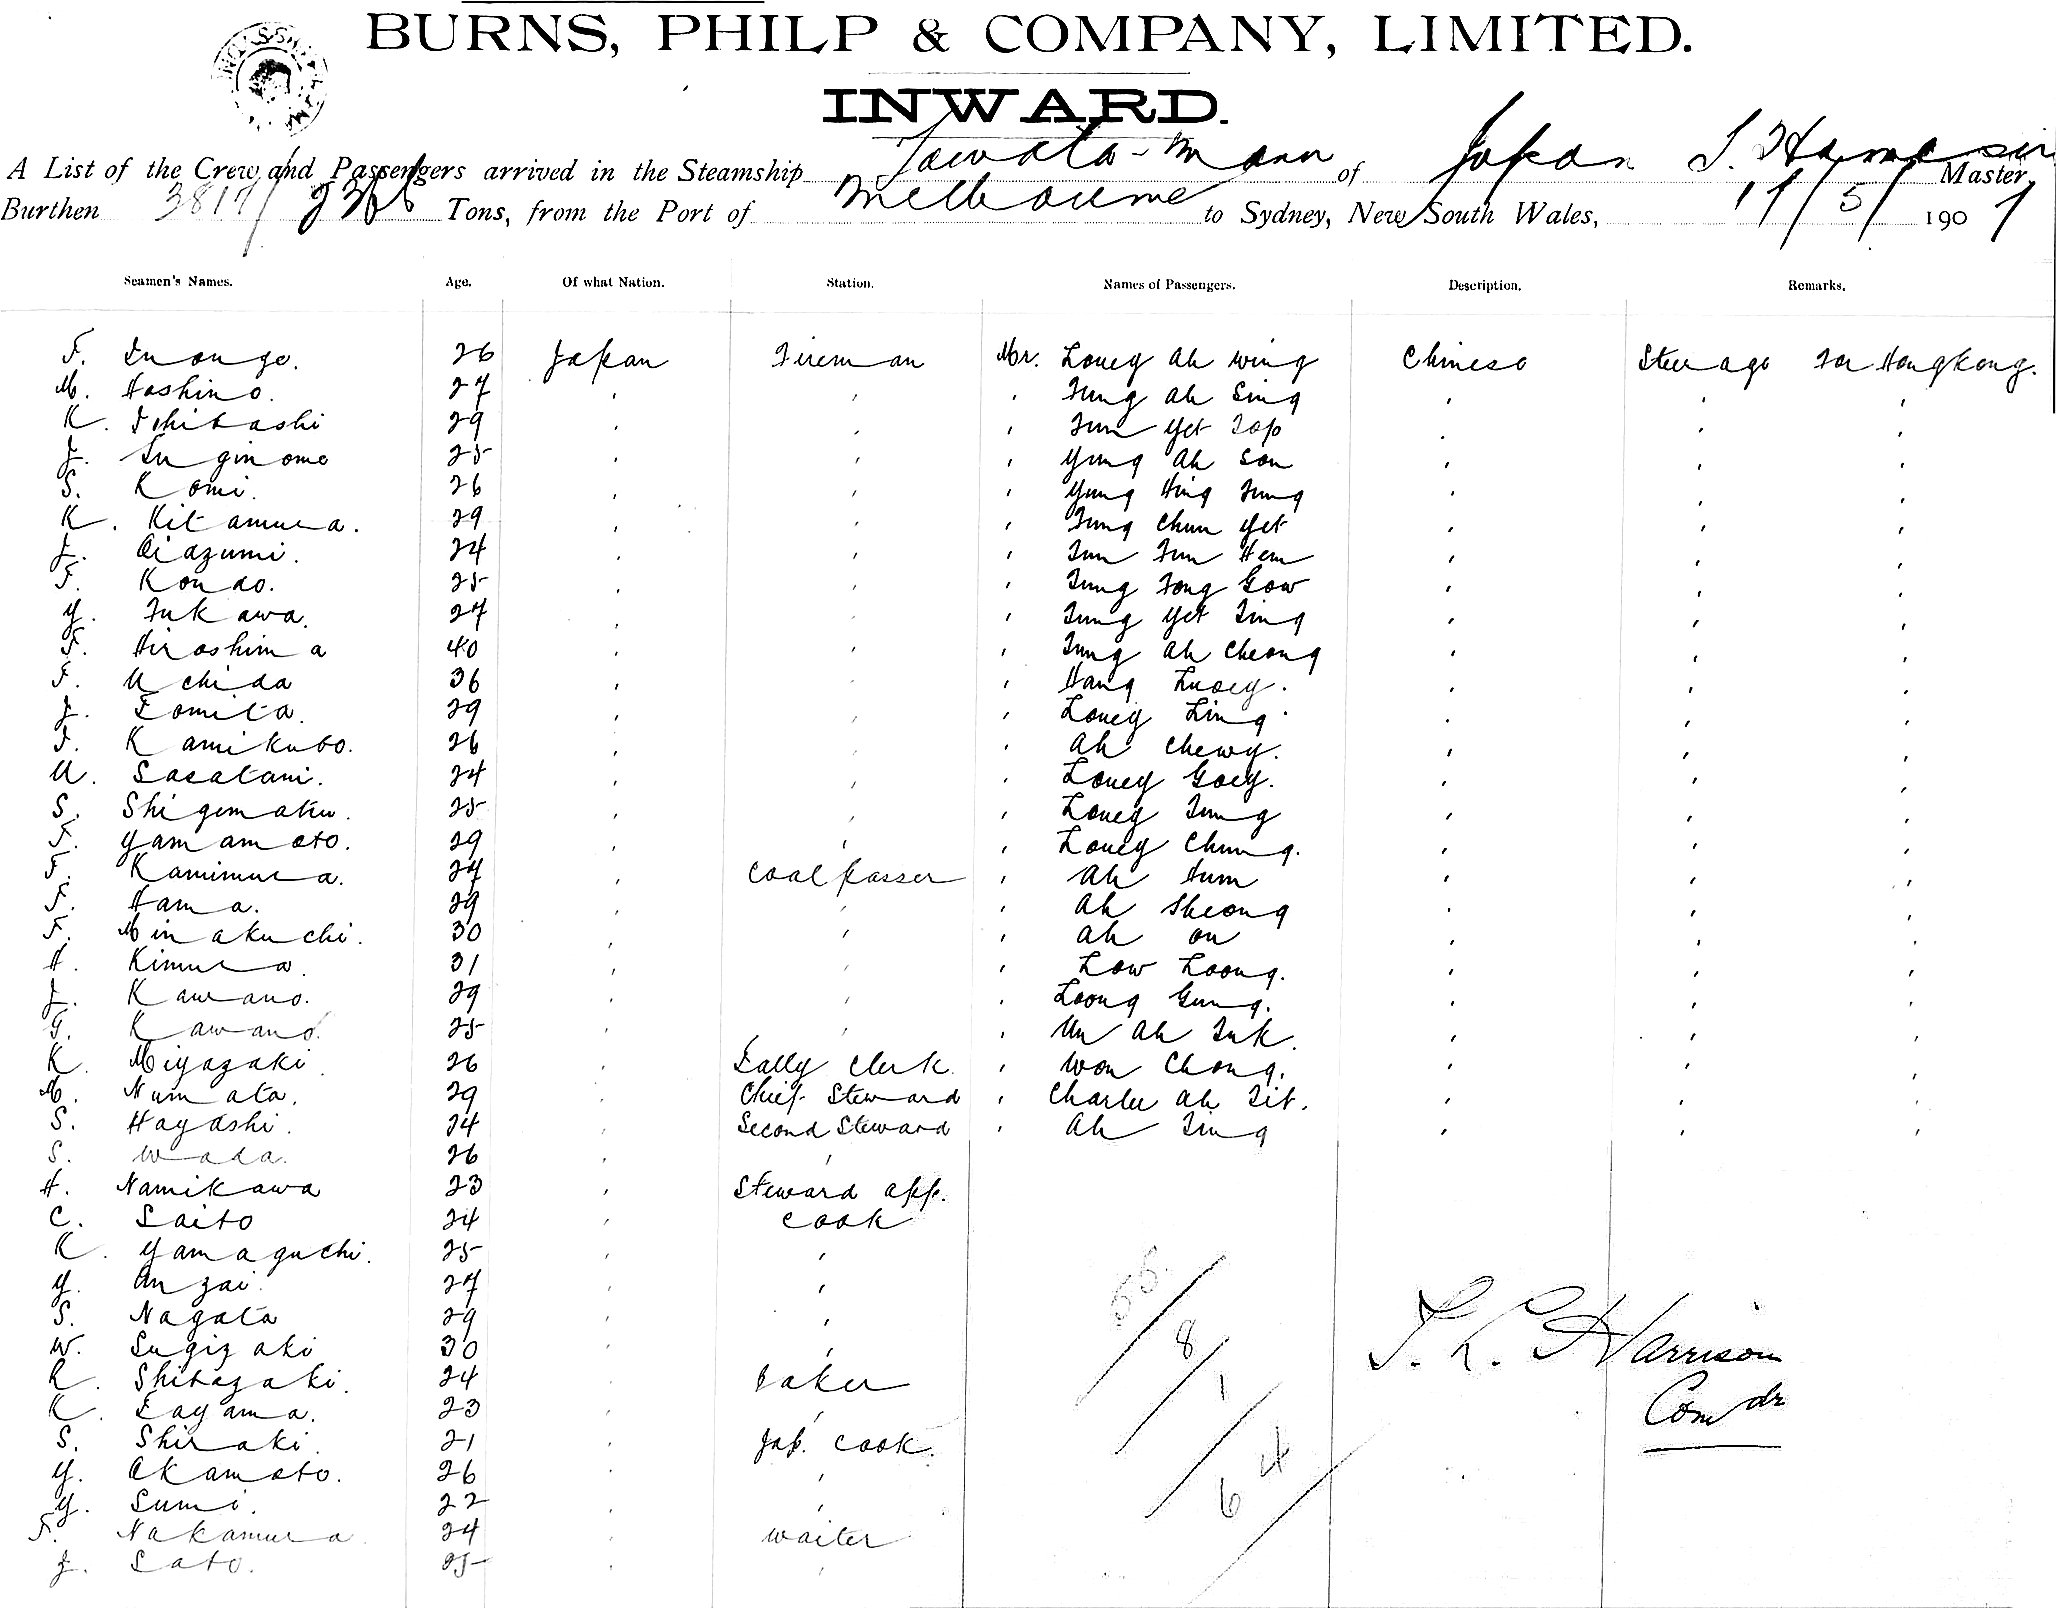 BURNS, PHILP & COMPANY, LIMITED.
INWARD.
A List of the Crew and Passengers arrived in the Steamship Yawata-Maru of Japan Master,
Burthen 3817/ Tons, from the Port of Melbourne to Sydney, New South Wales, 5/ 1907
Seamen's Names. Age. Of what Nation. Station. Names of Passengers. Description. Remarks.
F. Inouye. 26 Japan Fireman Mr. Louey Ah Wing Chinese Steerage For Hongkong.
M. Hoshino. 27 ' ' ' Fung Ah Sing ' ' '
K. Ishibashi 29 ' ' ' Fun Yet Fop ' ' '
J. Suginome 25 ' ' ' Yung Ah Son ' ' '
S. Komi. 26 ' ' ' Yung Hing Fung ' ' '
K. Kitamura. 29 ' ' ' Fung Chun Yet ' ' '
J. Oiazumi. 24 ' ' ' Fun Fun Hem ' ' '
F. Kondo. 25 ' ' ' Fung Fong Gow ' ' '
Y. Fukawa. 27 ' ' ' Fung Yet Fing ' ' '
F. Hiroshima 40 ' ' ' Fung Ah Cheong ' ' '
F. Uchida 36 ' ' ' Hang Luoey. ' ' '
J. Tomita. 29 ' ' ' Louey Ling ' ' '
F. Kamikubo. 26 ' ' ' Ah Chewy. ' ' '
U. Sacatani. 24 ' ' ' Louey Goey. ' ' '
S. Shigematu. 25 ' ' ' Louey Fung ' ' '
F. Yamamoto. 29 ' ' ' Louey Chung. ' ' '
F. Kamimura. 24 ' Coal passer ' Ah Hum ' ' '
F. Hama. 29 ' ' ' Ah Sheong ' ' '
F. Minakuchi. 30 ' ' ' Ah On ' ' '
H. Kimura. 31 ' ' ' Low Loong. ' ' '
J. Kawano. 29 ' ' ' Loong Gung. ' ' '
G. Kawano. 25 ' ' ' Un Ah Fuk. ' ' '
K. Miyazaki 26 ' Tally Clerk. ' Won Chong. ' ' '
M. Numata. 29 ' Chief Steward ' Charlie Ah Tit. ' ' '
S. Hayashi. 24 ' Second Steward ' Ah Ting ' ' '
S. Wada. 26 ' '
H. Namikawa 23 ' Steward app.
C. Saito 24 ' Cook
K. Yamaguchi. 25 ' '
Y. Anzai 27 ' '
S. Nagata 29 ' '
W. Sugizaki 30 ' '
K. Shibazaki. 24 ' Baker
K. Tayama. 23 ' '
S. Shiraki. 21 ' Jap. Cook.
Y. Okamoto. 26 ' '
Y. Sumi. 22 ' '
F. Nakamura. 24 ' Waiter
J. Sato. 25 ' '
55/
8/
1/
64/
T. L. Harrison
Comdr